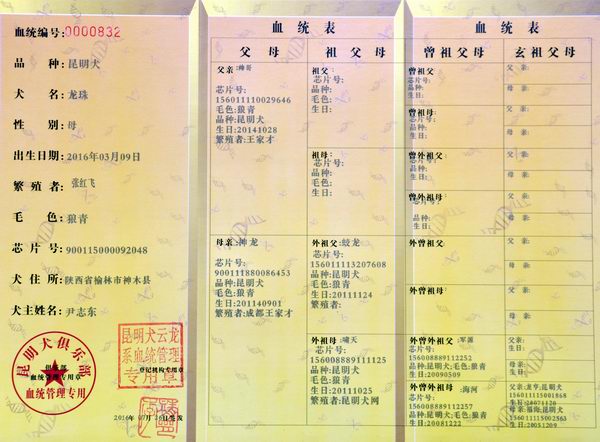 血统编号:0000832
品种:昆明犬
犬名:龙珠
性别:母
出生日期:2016年03月09日
繁殖者:张红飞
毛色:狼青
芯片号:900115000092048
犬住所:陕西省榆林市神木县
犬主姓名:尹志东
昆明犬俱乐部
俱乐部
血统管理专用章
血统管理专用
昆明犬云龙
系血统管理
登记机构专用章
专用章
血统表
父母
祖父母
父亲:帅哥
芯片号:
156011110029646
毛色:狼青
品种:昆明犬
生日:20141028
繁殖者:王家才
祖父:
芯片号:
品种:
毛色:
生日:
祖母:
芯片号:
品种:
毛色:
生日:
母亲:神龙
芯片号:
900111880086453
毛色:狼青
品种:昆明犬
生日:201140901
繁殖者:成都王家才
外祖父:蛟龙
芯片号:
156011113207608
品种:昆明犬
毛色:狼青
生日:20111124
外祖母:啸天
芯片号:
156008889111125
品种:昆明犬
毛色:狼青
生日:20111025
繁殖者:昆明犬网
血统表
曾祖父母
玄祖父母
曾祖父:
芯片号:
品种:
生日:
曾祖母:
芯片号:
品种:
生日:
曾外祖父:
芯片号:
品种:
生日:
曾外祖母:
芯片号:
品种:
生日:
外曾祖父:
外曾祖母:
外曾外祖父:军源
芯片号:
156008889112252
品种:昆明犬;毛色:狼青
生日:20090509
外曾外祖母:海河
芯片号:
156008889112257
品种:昆明犬;毛色:狼青
生日:20081222
父亲:
母亲:
父亲:
母亲:
父亲:
母亲:
父亲:
母亲:
父亲:
母亲:
父亲:
母亲:
父亲:
母亲: